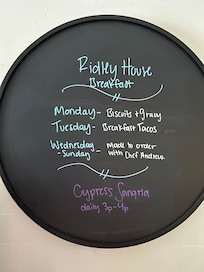 Ridley House
Breakfast
Monday - Biscuits + gravy
Tuesday - Breakfast Tacos
Wednesday - Made to order
- Sunday with Chef Andrew
Cypress Sangria
daily 3p-4p